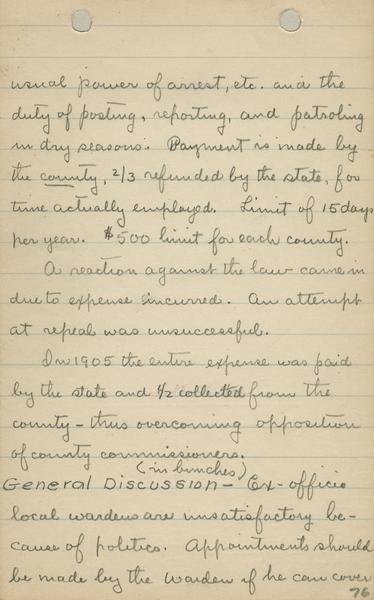 usual power of arrest, etc. and the
duty of posting, reporting, and patroling
in dry seasons. Payment is made by
the county, 2/3 refunded by the state, for
time actually employed. Limit of 15 days
per year. $500 limit for each county.
A reaction against the law came in
due to expense incurred. An attempt
at repeal was unsuccessful.
In 1905 the entire expense was paid
by the state and 1/2 collected from the
county - thus overcoming opposition
of county commissioners.
(in bunches)
General Discussion - Ex-officio
local wardens are unsatisfactory be-
cause of politics. Appointments should
be made by the Warden if he can cover
76